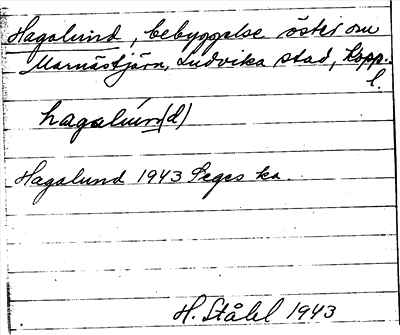 Hagalund, bebyggelse öster om
Marnästjärn, Ludvika stad, Kopp.
l.
hagalún(d)
Hagalund 1943 Seges ka.
H. Ståhl 1943